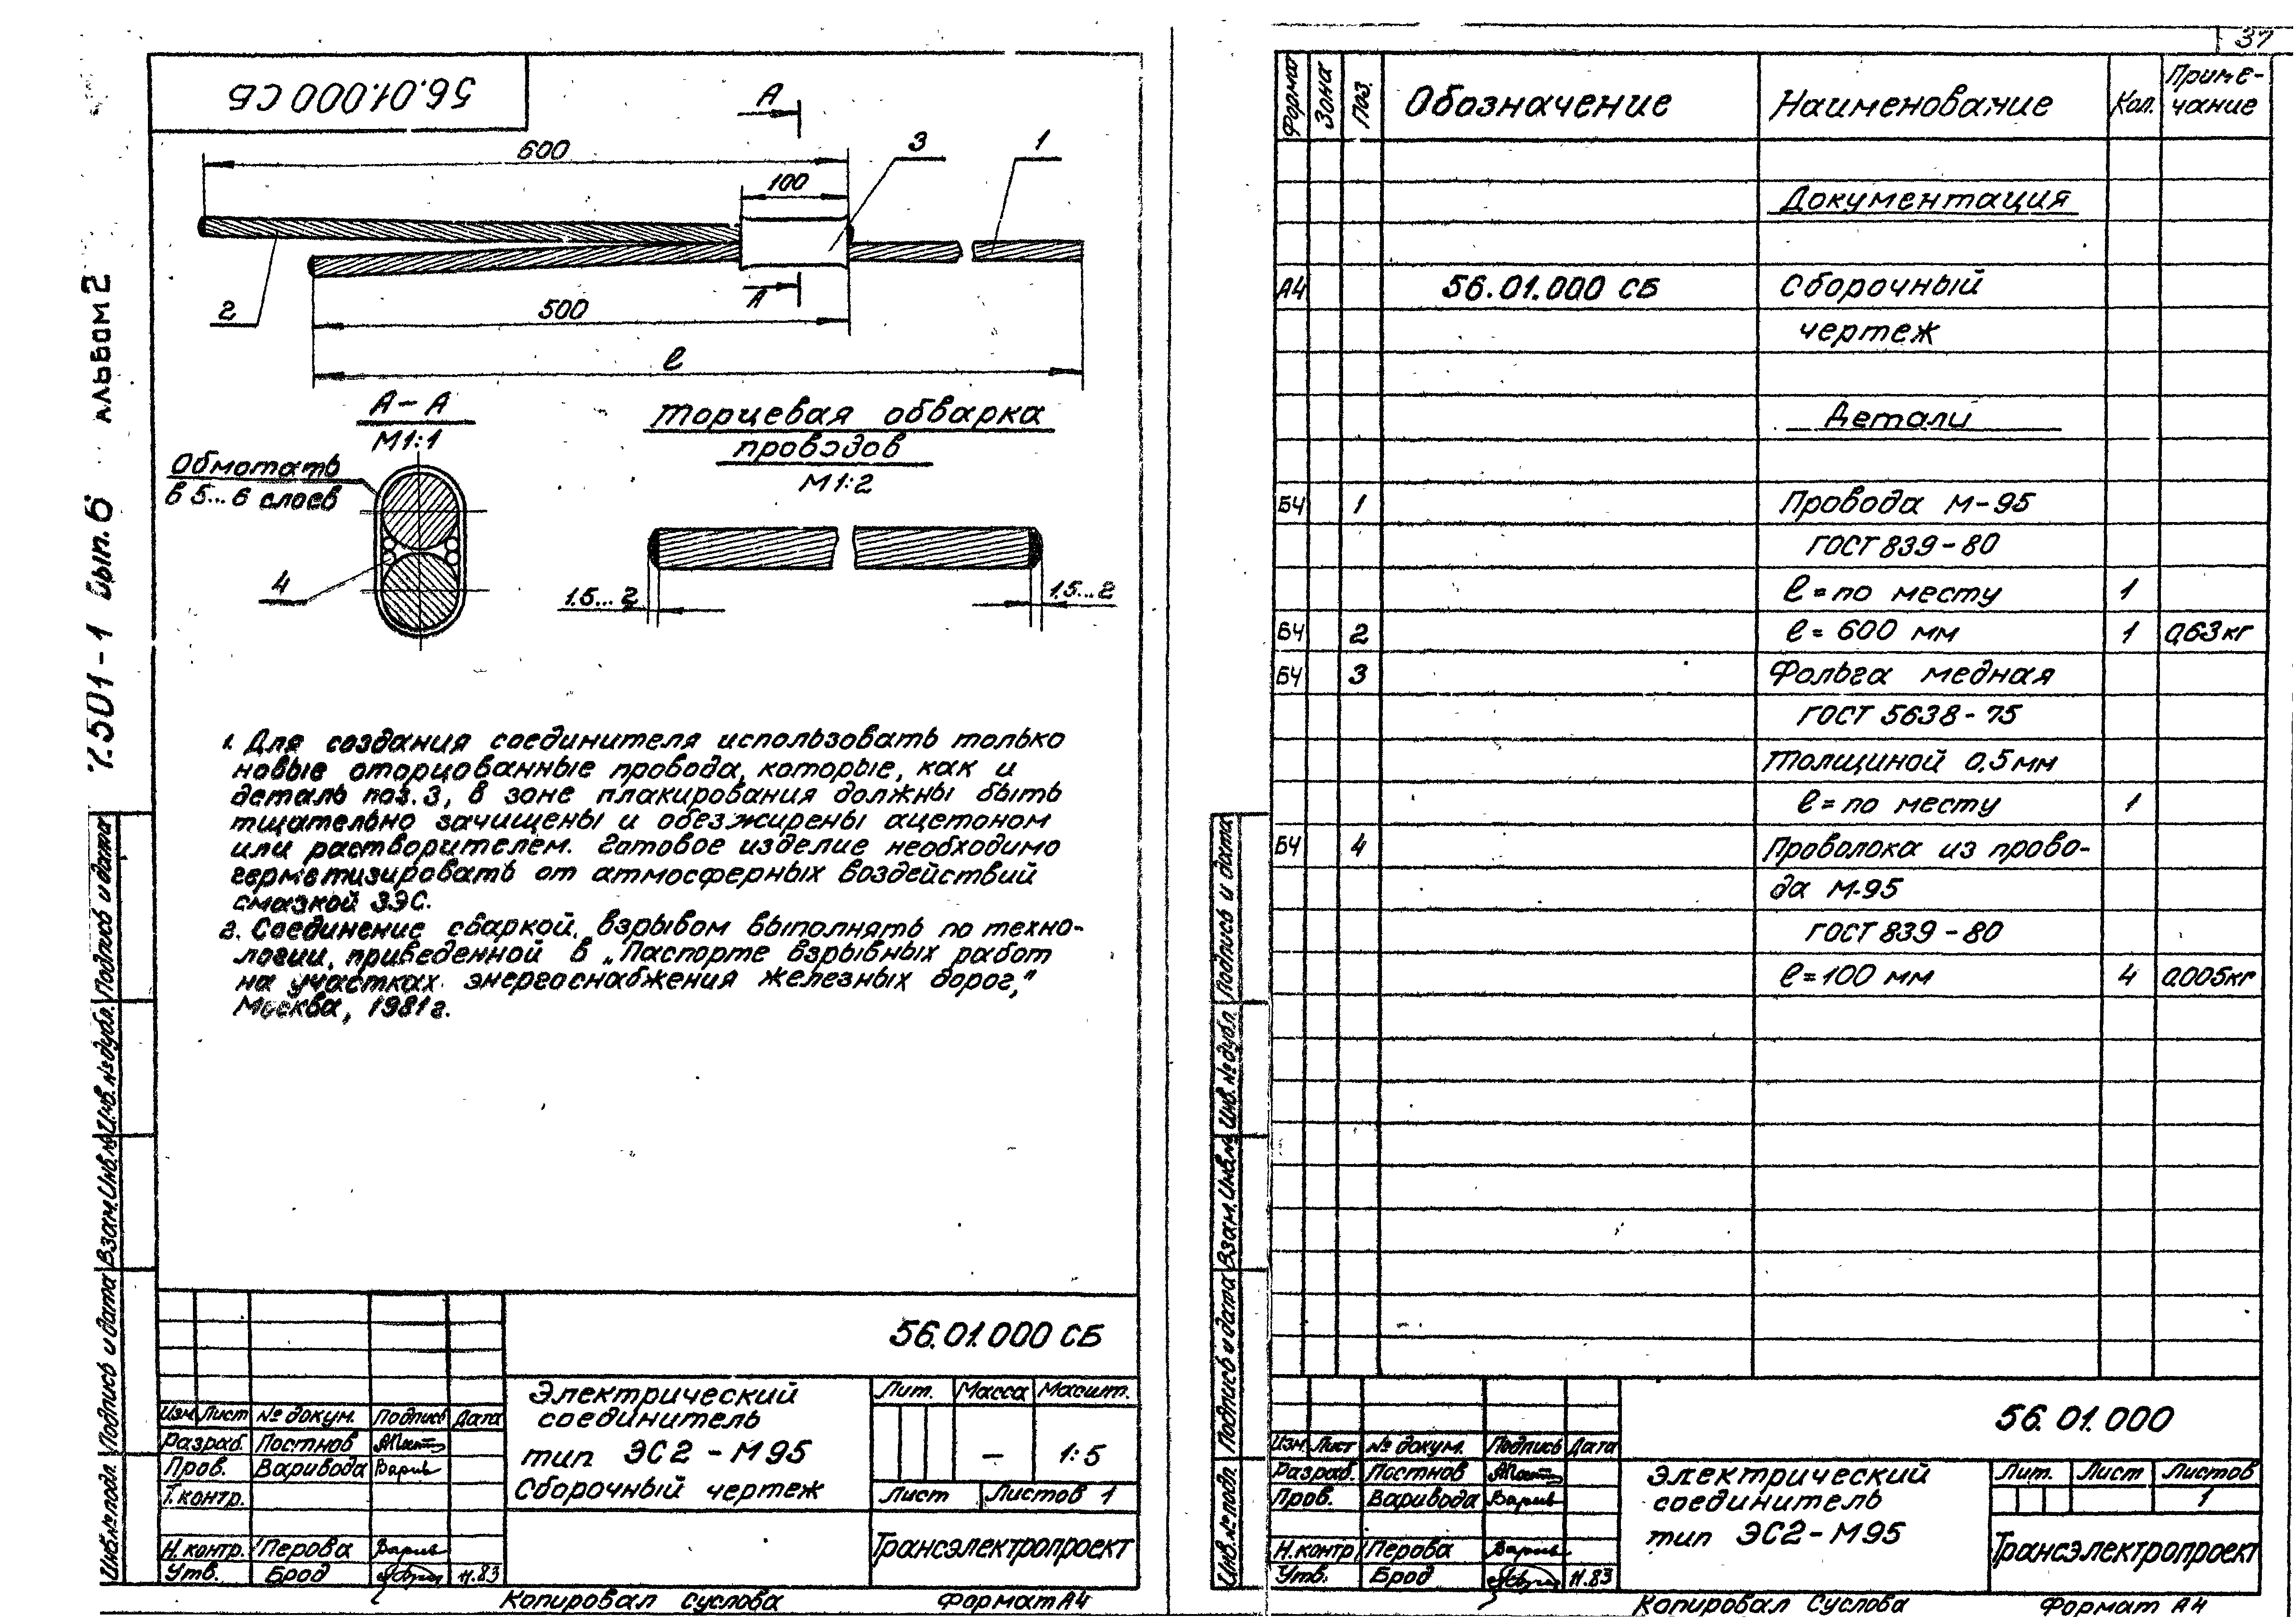 56.01.000 СБ
А
600
3
1
100
2
А
500
ℓ
А-А
М1:1
Обмотать
в 5...6 слоев
4
Торцевая обварка
проводов
М1:2
1.5...2
1.5...2
7.501-1 Вып.6 альбом 2
1. Для создания соединителя использовать только
новые оторцованные провода, которые, как и
деталь поз.3, в зоне плакирования должны быть
тщательно зачищены и обезжирены ацетоном
или растворителем. Готовое изделие необходимо
герметизировать от атмосферных воздействий
смазкой ЗЭС.
2. Соединение сваркой взрывом выполнять по техно-
логии, приведенной в „Паспорте взрывных работ
на участках энергоснабжения железных дорог,"
Москва, 1981г.
Подпись и дата
Инв.№дубл.
Взам.Инв.№
Подпись и дата
Инв.№подл.
56.01.000 СБ
Электрический
соединитель
тип ЭС2-М95
Сборочный чертеж
Лит. Масса Масшт.
– 1:5
Лист Листов 1
Трансэлектропроект
Изм. Лист № докум. Подпись Дата
Разраб. Постнов
Пров. Варивода
Т.контр.
Н.контр. Перова
Утв. Брод 11.83
Копировал Суслова Формат А4
37
Формат Зона Поз. Обозначение Наименование Кол. Приме-
чание
Документация
А4 56.01.000 СБ Сборочный
чертеж
Детали
БЧ 1 Провода М-95
ГОСТ 839-80
ℓ=по месту 1
БЧ 2 ℓ= 600 мм 1 0,63кг
БЧ 3 Фольга медная
ГОСТ 5638-75
толщиной 0,5мм
ℓ=по месту 1
БЧ 4 Проволока из прово-
да М-95
ГОСТ 839-80
ℓ=100 мм 4 0,005кг
Подпись и дата
Инв.№дубл.
Взам.Инв.№
Подпись и дата
Инв.№подл.
56.01.000
Изм. Лист № докум. Подпись Дата
Разраб. Постнов
Пров. Варивода
Н.контр Перова
Утв. Брод 11.83
Электрический
соединитель
тип ЭС2-М95
Лит. Лист Листов
1
Трансэлектропроект
Копировал Суслова Формат А4